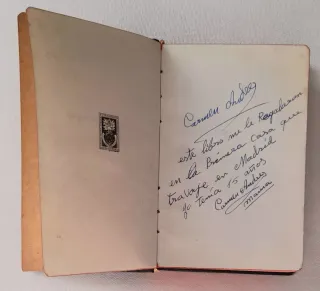 Carmen Andrés
este libro me lo Regalaron
en la Primera casa que
trabaje en Madrid
yo tenia 15 años
Carmen Andrés
mama